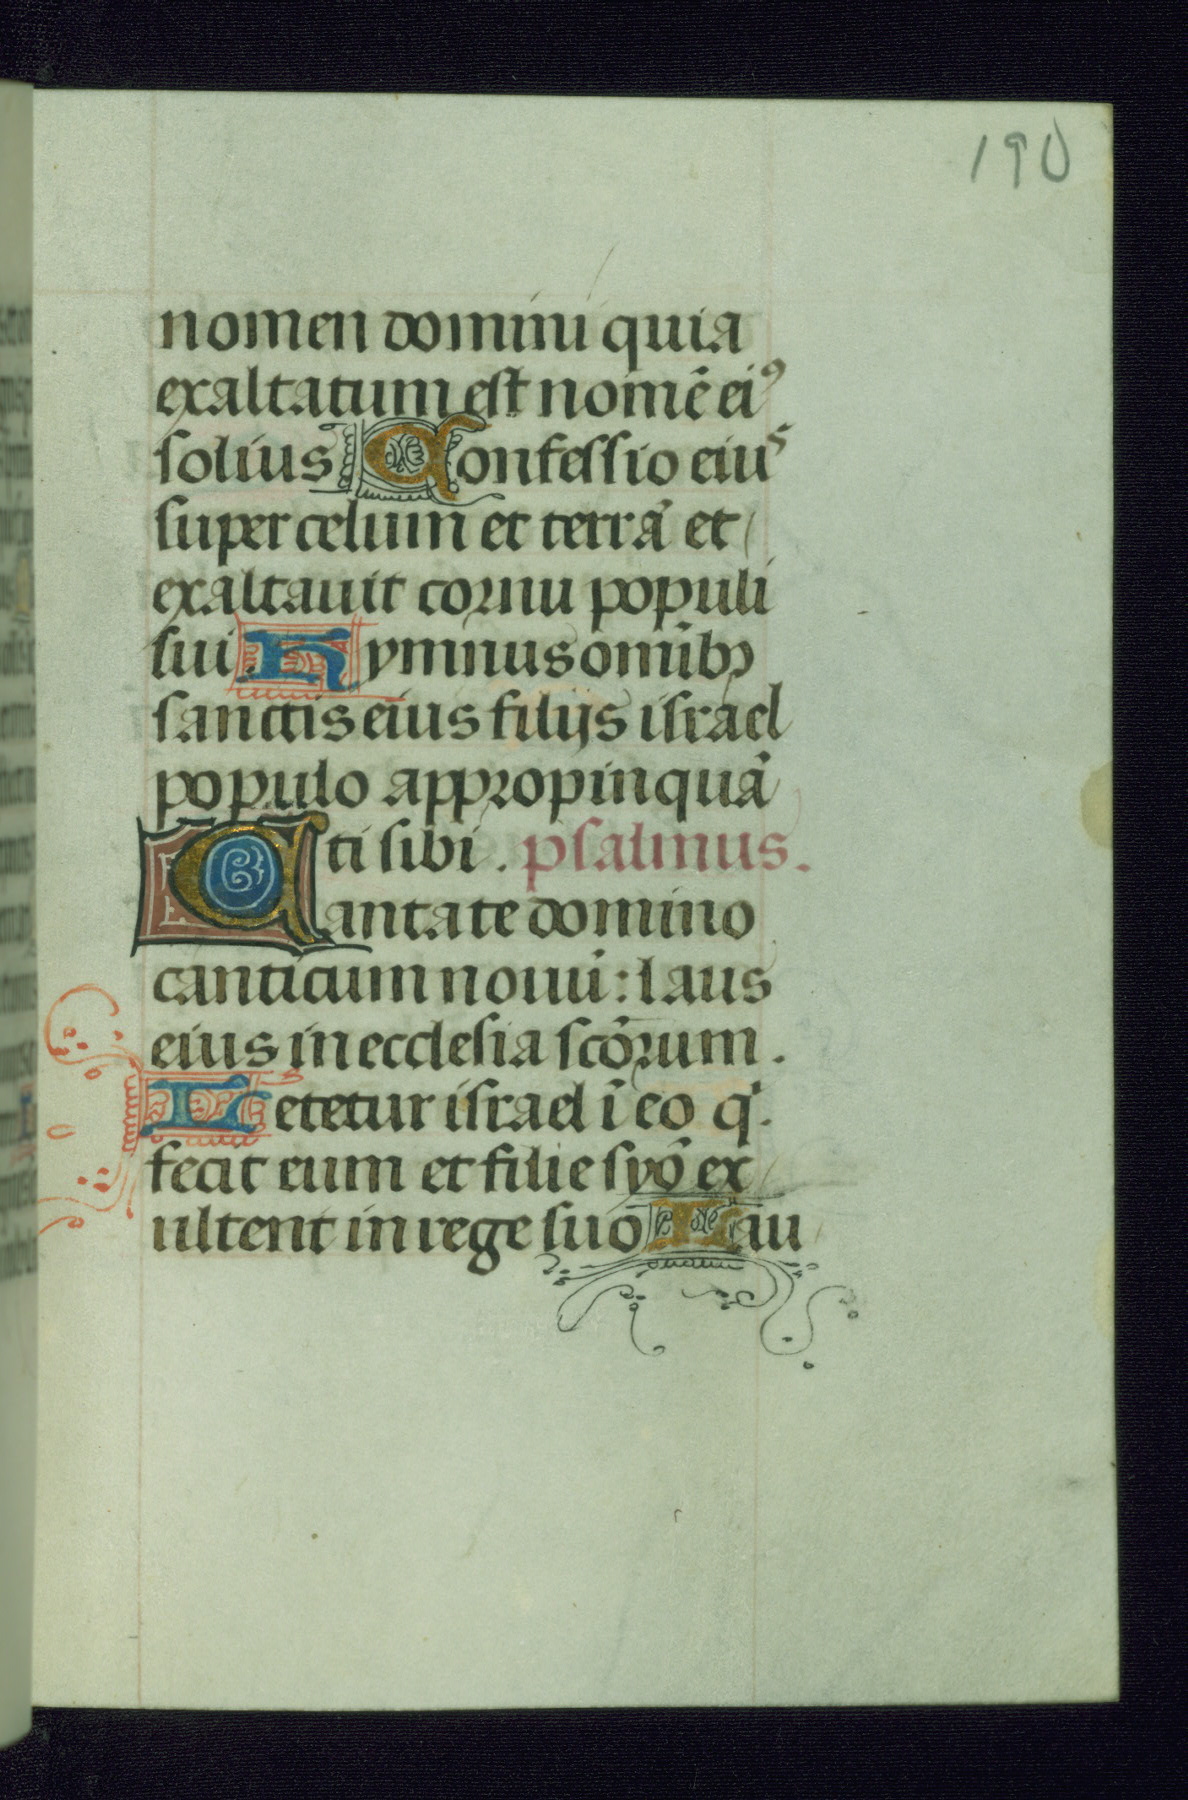 190
nomen domini quia
exaltatum est nomē eiꝰ
solius Confessio eius
super celum et terrā et
exaltauit cornu populi
sui Hymnus omībꝫ
sanctis eius filijs israel
populo appropinquā
ti sibi . psalmus.
Cantate domino
canticum nouū: laus
eius in ecclesia scōrum .
Letetur israel ī eo q̇.
fecit eum et filie syō ex
ultent in rege suo Lau